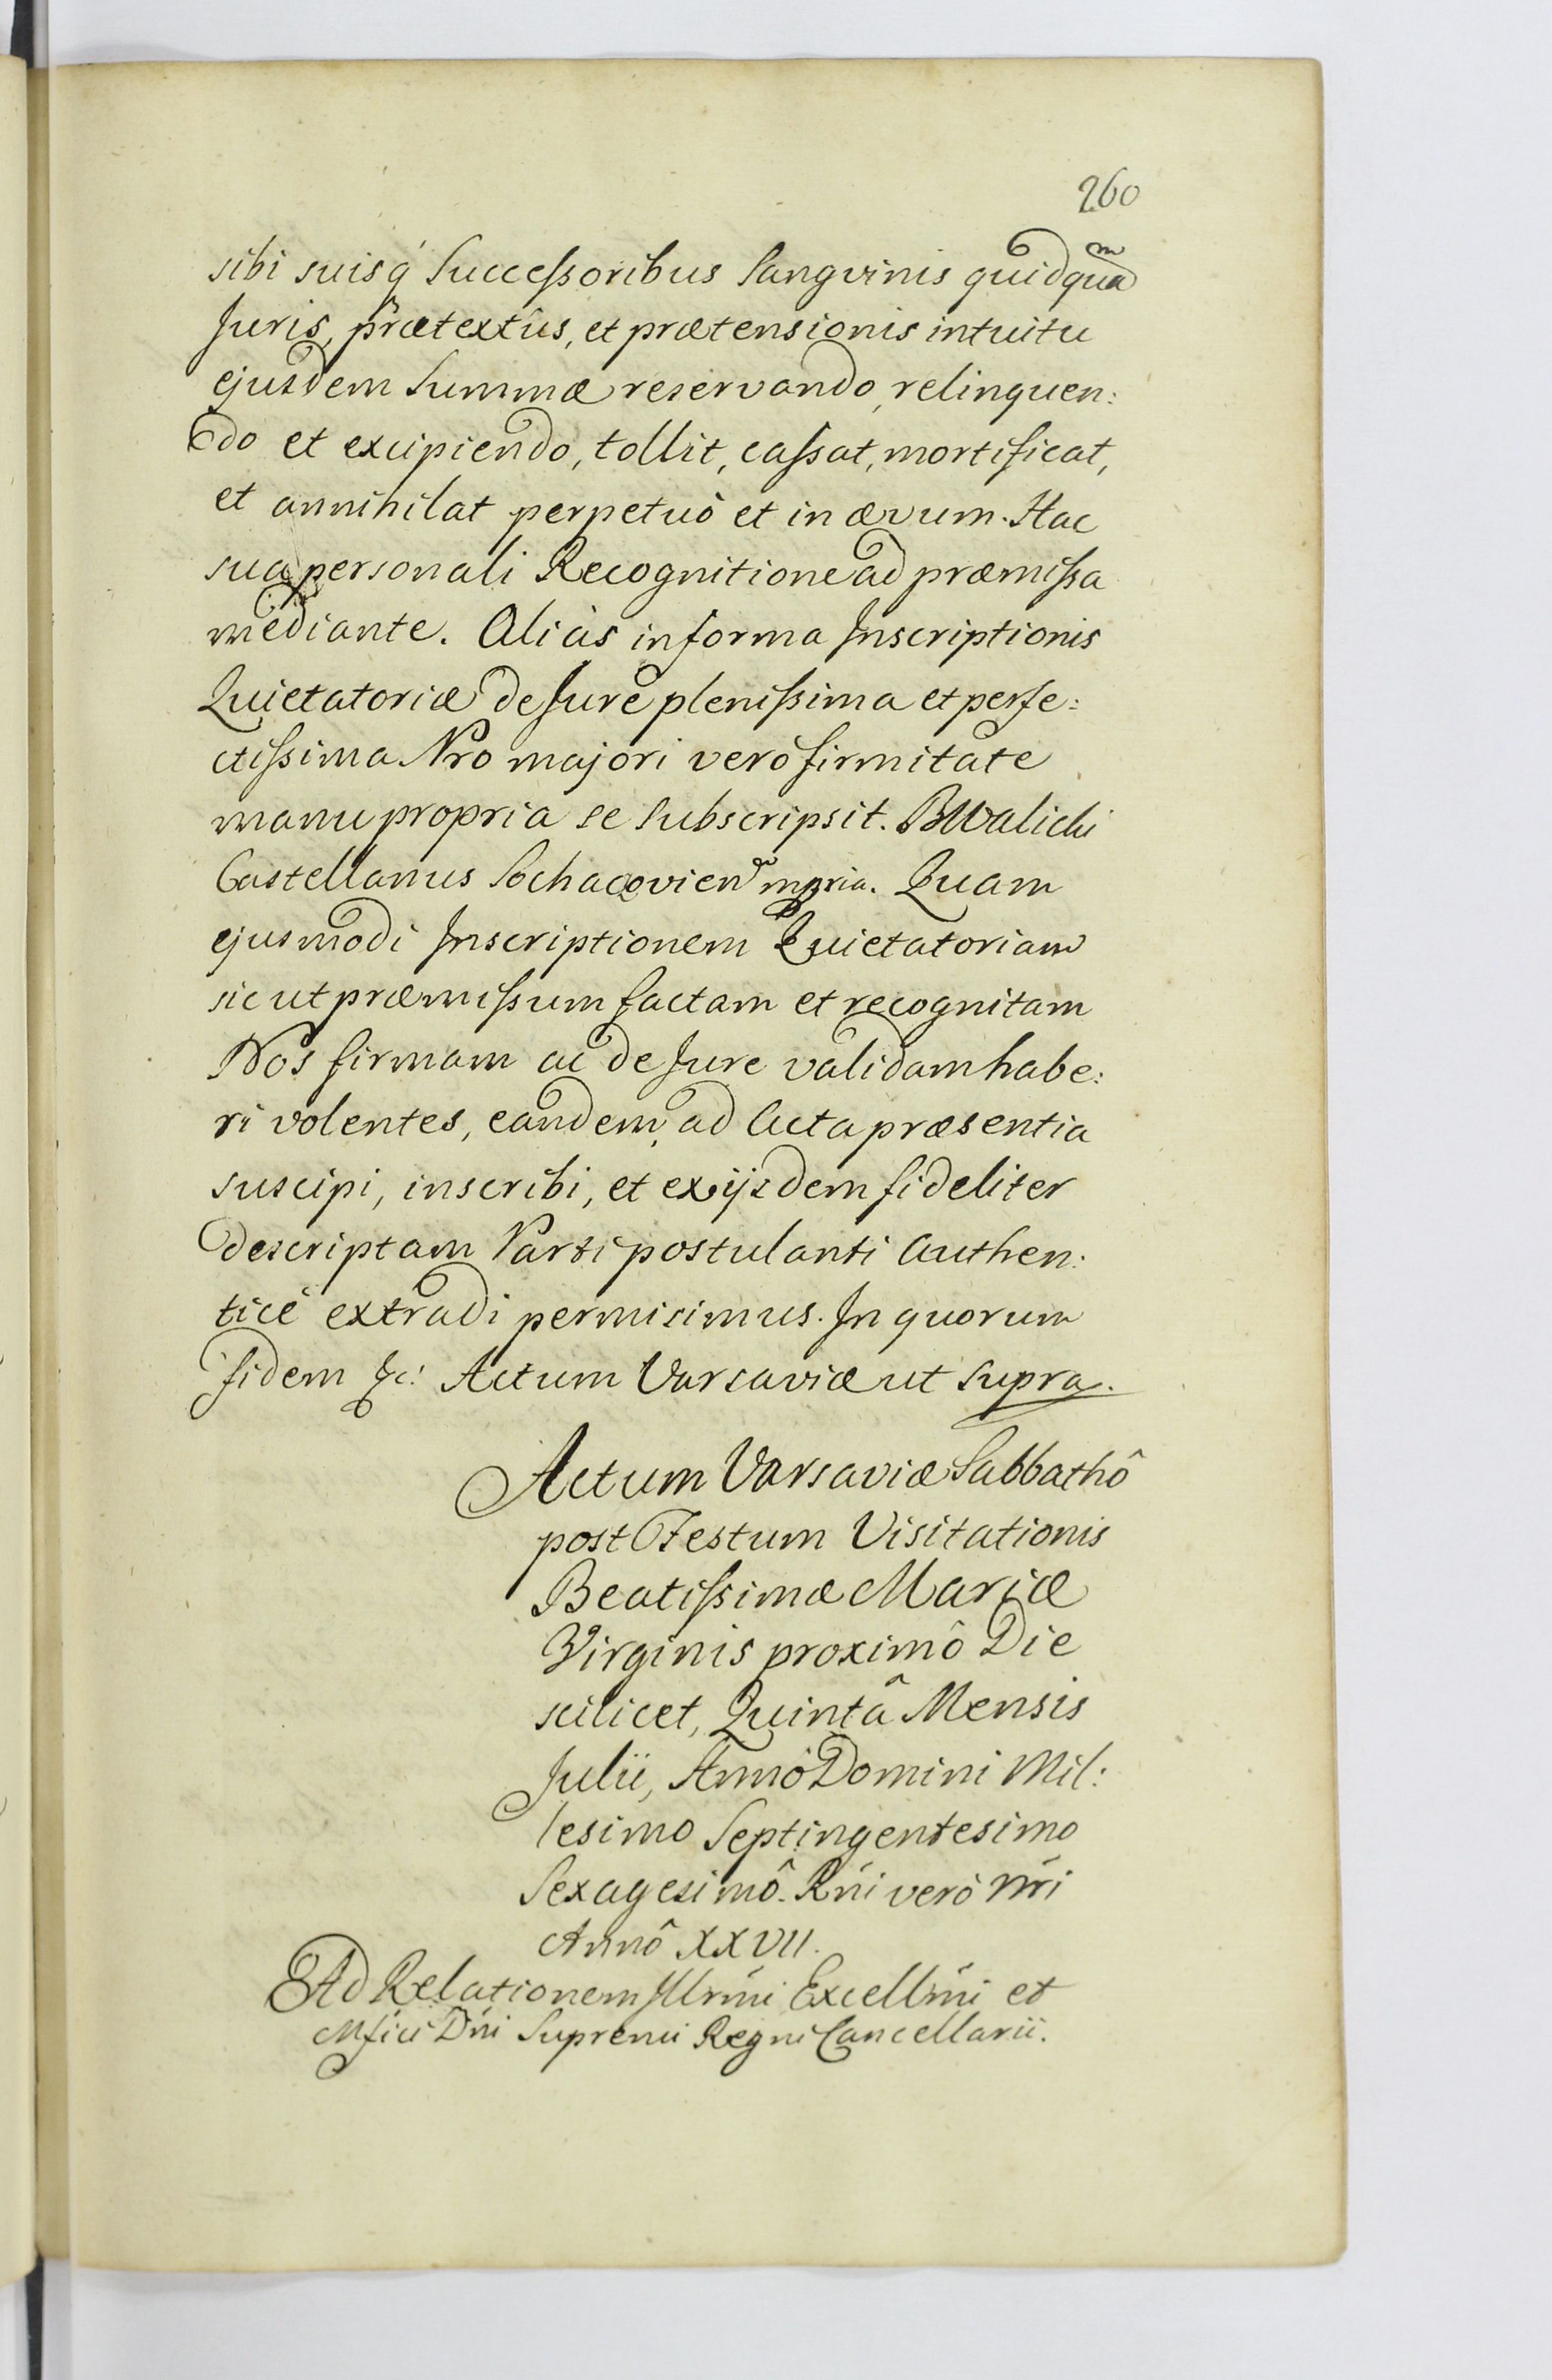 260
sibi suisq́ Successoribus Sangvinis quidquam
Juris, prætextûs, et prætensionis intuitu
ejusdem Summæ reservando, relinquen:
do et excipiendo, tollit, cassat, mortificat,
et annihilat perpetuò et in ævum. Hac
sua personali Recognitione ad præmissa
mediante. Aliàs in forma Inscriptionis
Quietatoriæ de Jure plenissima et perfe:
ctissima Pro majori verò firmitate
manu propria se subscripsit. BWalicki
Castellanus Sochacovien mpria. Quam
ejusmodi Inscriptionem Quietatoriam
sic ut præmissum factam et recognitam
Nos firmam ac de Jure validam habe:
ri volentes, eandem, ad Acta præsentia
suscipi, inscribi, et ex ijsdem fideliter
descriptam Parti postulanti Authen:
ticè extradi permisimus. In quorum
fidem &c: Actum Varsaviæ ut supra.
Actum Varsaviæ Sabbathô
post Festum Visitationis
Beatissimæ Mariæ
Virginis proximô Die
scilicet, Quintâ Mensis
Julii, Annô Domini Mil:
lesimo Septingentesimo
Sexagesimô. Rńi verò Nri
Annô XXVII.
Ad Relationem Illrmi Excellmi et
Mfici Dńi Supremi Regni Cancellarii.